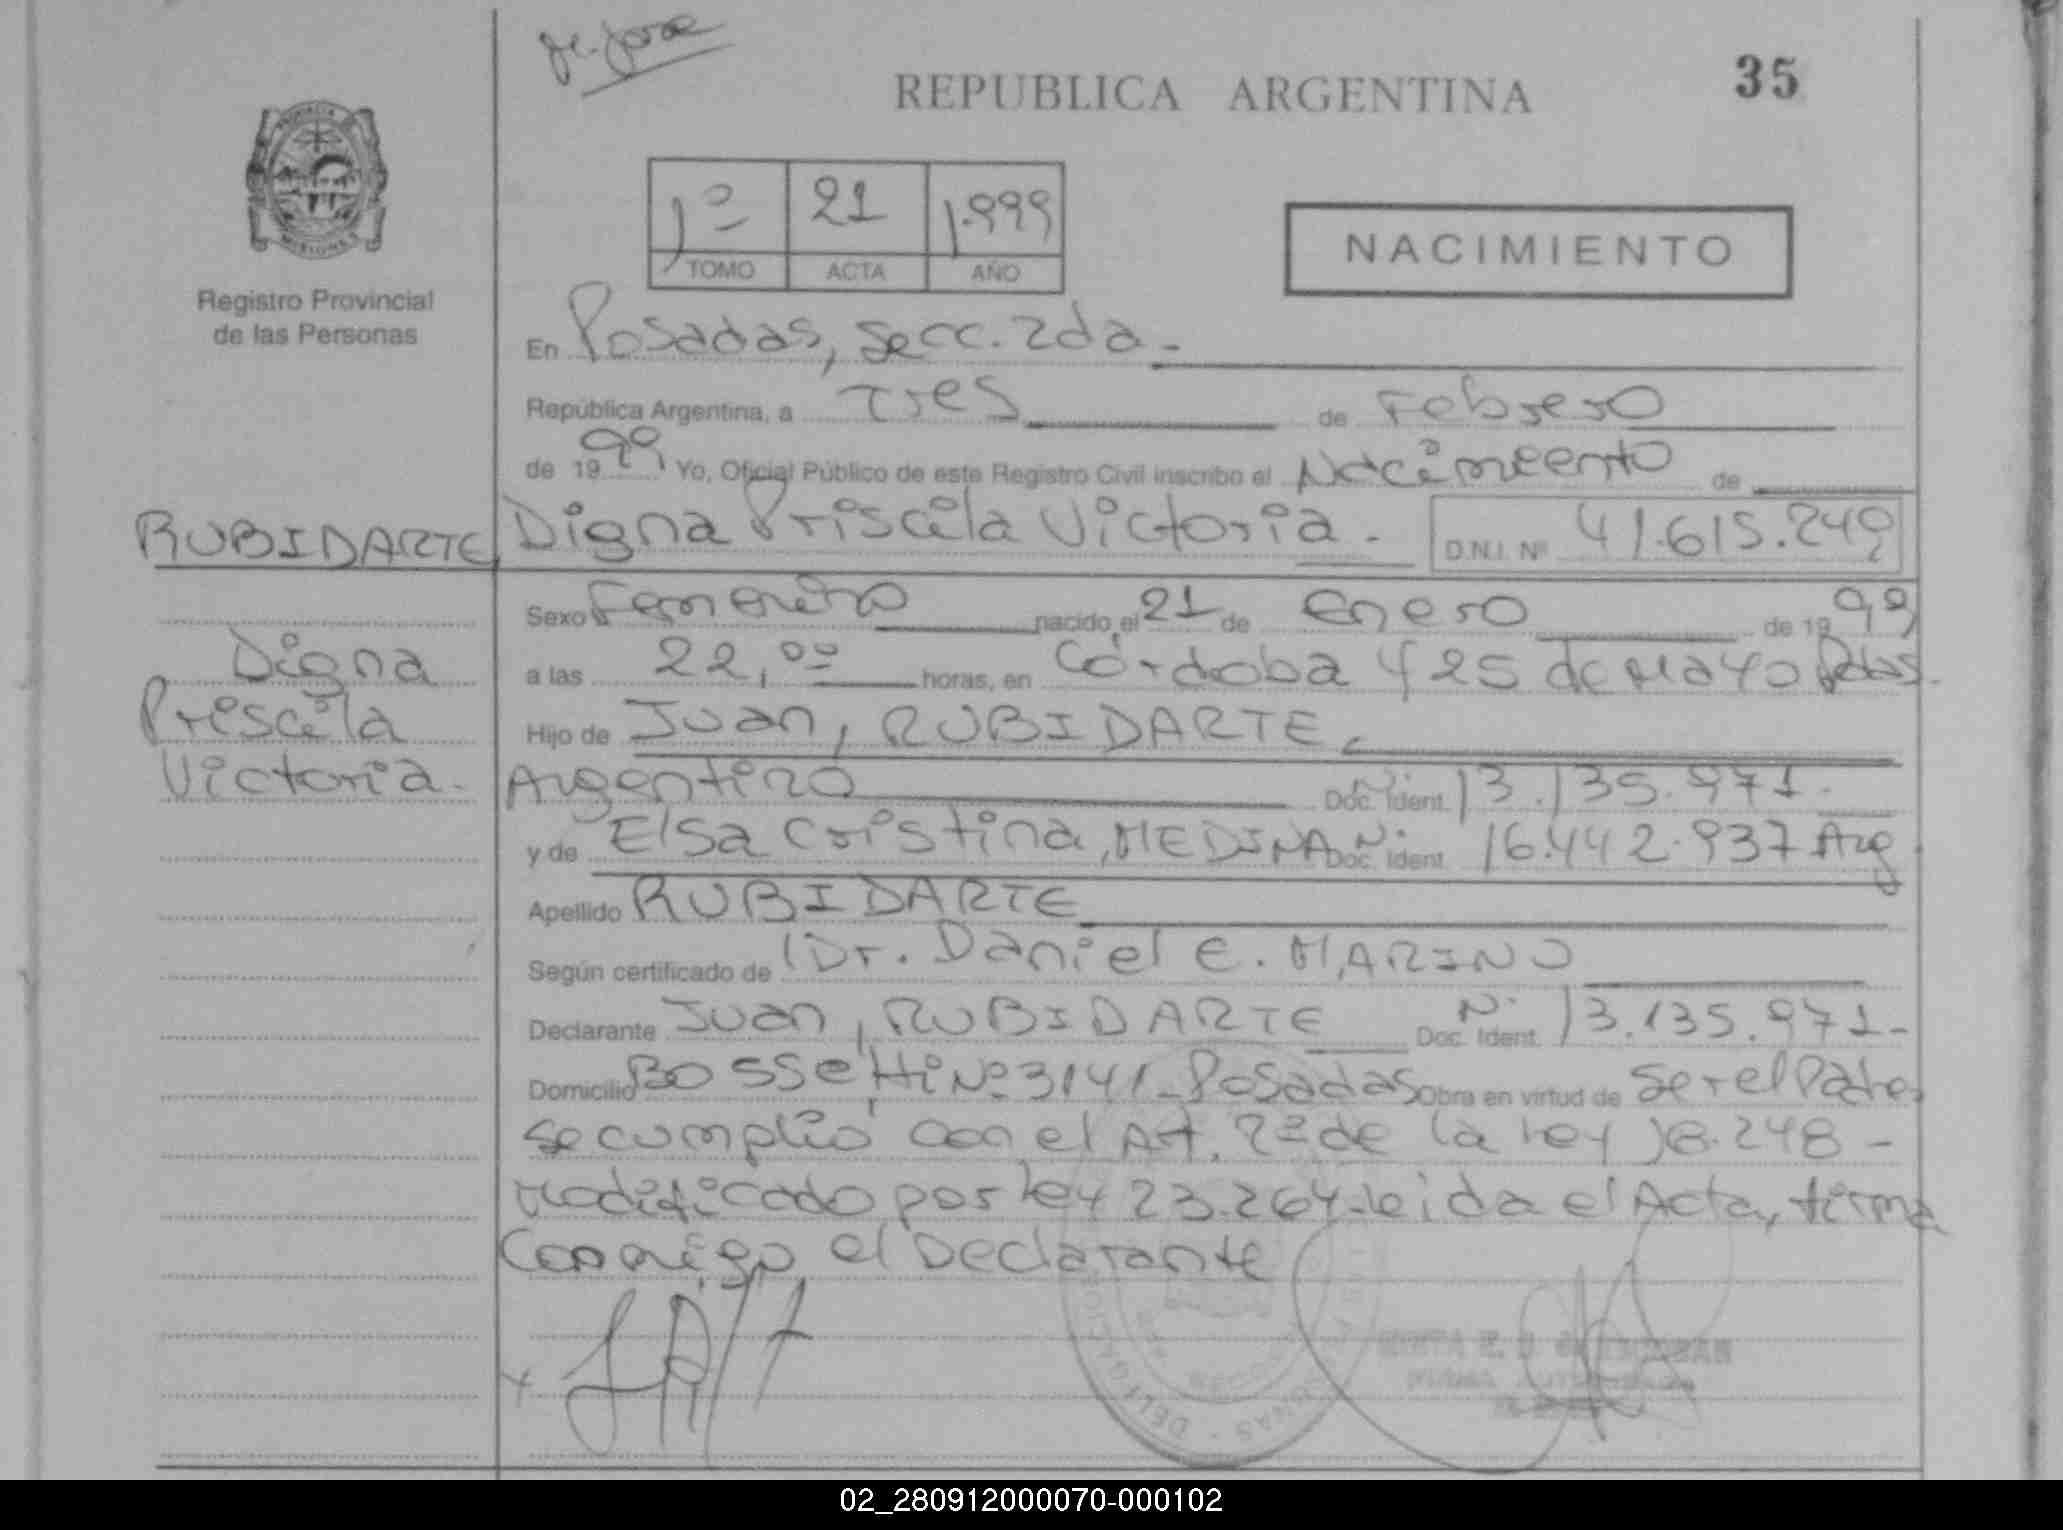 REPUBLICA ARGENTINA
35
PROVINCIA
MISIONES
Registro Provincial
de las Personas
1º 21 1.999
TOMO ACTA AÑO
NACIMIENTO
En Posadas, secc. 2da -
República Argentina, a Tres de Febrero
de 1999 Yo, Oficial Público de este Registro Civil inscribo el Nacimiento de
RUBIDARTE Digna Priscila Victoria - D.N.I. Nº 41.615.249
Sexo Femenino nacido el 21 de Enero de 1999
Digna a las 22,00 horas, en Córdoba y 25 de Mayo Pdas.
Priscila Hijo de Juan, RUBIDARTE
Victoria - Argentino Doc. Ident. Nº 13.135.971 -
y de Elsa Cristina, MEDINA Doc. Ident. Nº 16.442.937 Arg.
Apellido RUBIDARTE
Según certificado de Dr. Daniel E. MARINO
Declarante Juan, RUBIDARTE Doc. Ident. Nº 13.135.971 -
Domicilio Bossetti Nº 3141 - Posadas Obra en virtud de ser el Padre
se cumplió con el Art. 2º de la ley 18.248 -
modificado por ley 23.264 - leida el Acta, firma
Conmigo el Declarante
02_280912000070-000102